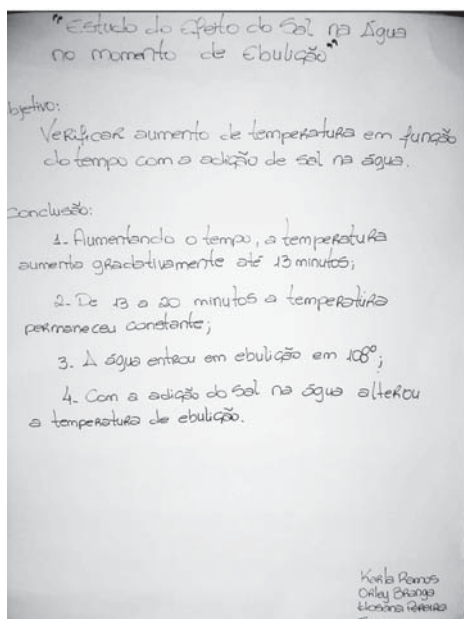 "Estudo do Efeito do Sal na Água
no momento de Ebulição"
bjetivo:
Verificar aumento de temperatura em função
do tempo com a adição de sal na água.
Conclusão:
1- Aumentando o tempo, a temperatura
aumenta gradativamente até 13 minutos;
2- De 13 a 20 minutos a temperatura
permaneceu constante;
3. A água entrou em ebulição em 108º;
4- Com a adição do sal na água alterou
a temperatura de ebulição.
Karla Ramos
Orley Branga
Elosana Pereira